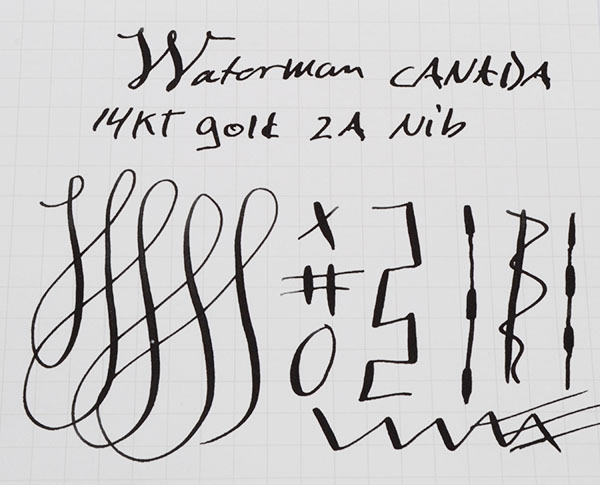 Waterman CANADA
14KT gold 2A Nib
X
#
O